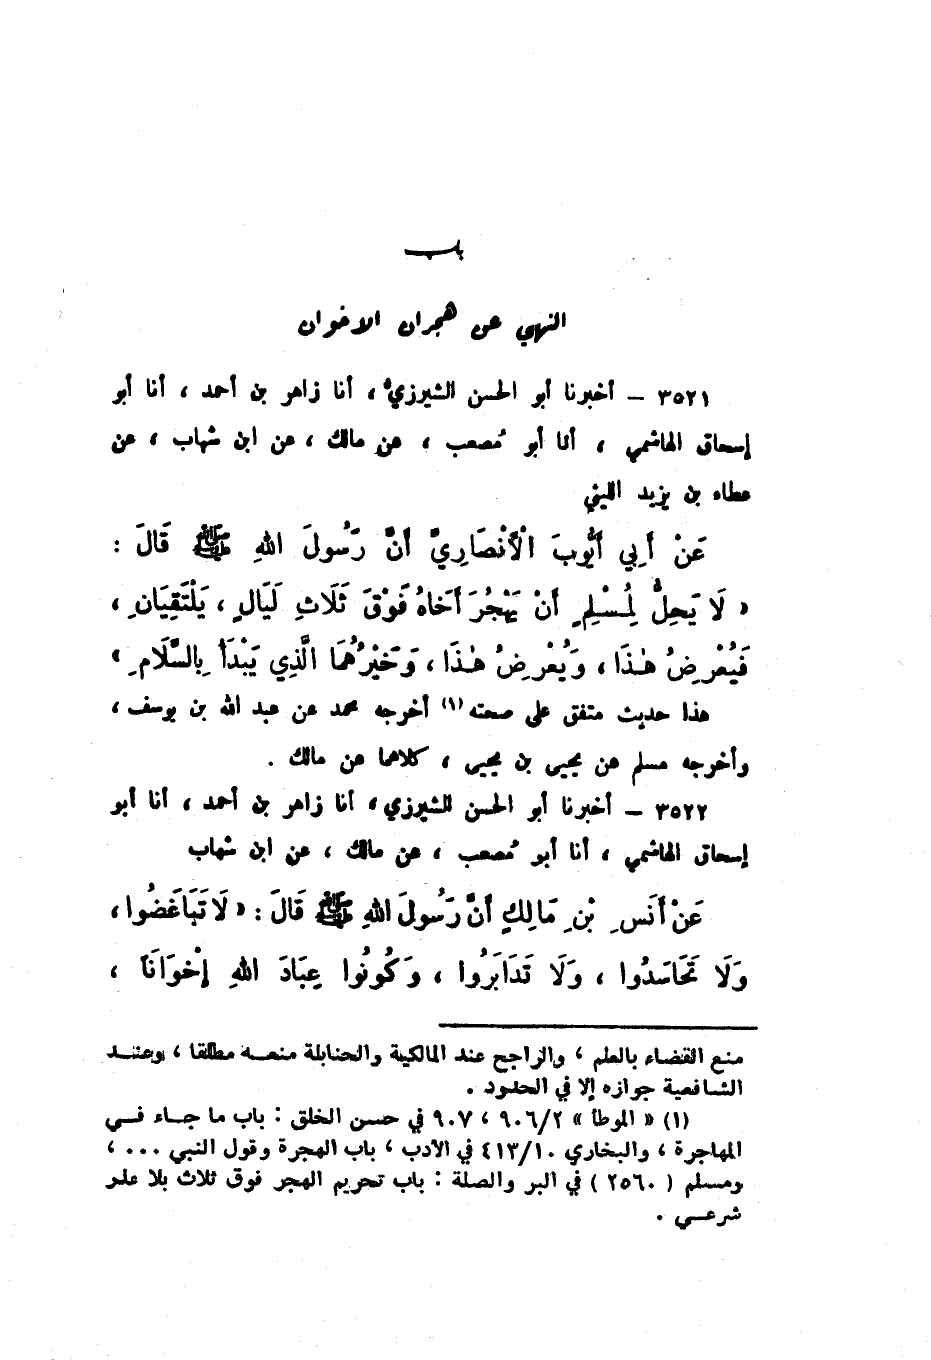 باب
النهي عن هجران الاخوان
٣٥٢١ – أخبرنا أبو الحسن الشيرزيُّ ، أنا زاهر بن أحمد ، أنا أبو
إسحاق الهاشمي ، أنا أبو مُصعب ، عن مالك ، عن ابن شهاب ، عن
عطاء بن يزيد الليثي
عَنْ أَبِي أَيُّوبَ الْأَنْصَارِيِّ أَنَّ رَسُولَ اللهِ ﷺ قَالَ :
« لَا يَحِلُّ لِمُسْلِمٍ أَنْ يَهْجُرَ أَخَاهُ فَوْقَ ثَلَاثِ لَيَالٍ ، يَلْتَقِيَانِ ،
فَيُعْرِضُ هٰذَا ، وَيُعْرِضُ هٰذَا ، وَخَيْرُهُمَا الَّذِي يَبْدَأُ بِالسَّلَامِ »
هذا حديث متفق على صحته (١) أخرجه محمد عن عبد الله بن يوسف ،
وأخرجه مسلم عن يحيى بن يحيى ، كلاهما عن مالك .
٣٥٢٢ – أخبرنا أبو الحسن الشيرزي ، أنا زاهر بن أحمد ، أنا أبو
إسحاق الهاشمي ، أنا أبو مُصعب ، عن مالك ، عن ابن شهاب
عَنْ أَنَسِ بْنِ مَالِكٍ أَنَّ رَسُولَ اللهِ ﷺ قَالَ : « لَا تَبَاغَضُوا ،
وَلَا تَحَاسَدُوا ، وَلَا تَدَابَرُوا ، وَكُونُوا عِبَادَ اللهِ إِخْوَانَاً ،
منع القضاء بالعلم ، والراجح عند المالكية والحنابلة منعه مطلقا ، وعند
الشافعية جوازه إلا في الحدود .
(١) « الموطأ » ٩٠٦/٢ ، ٩٠٧ في حسن الخلق : باب ما جاء في
المهاجرة ، والبخاري ٤١٣/١٠ في الأدب ، باب الهجرة وقول النبي ... ،
ومسلم ( ٢٥٦٠ ) في البر والصلة : باب تحريم الهجر فوق ثلاث بلا عذر
شرعي .